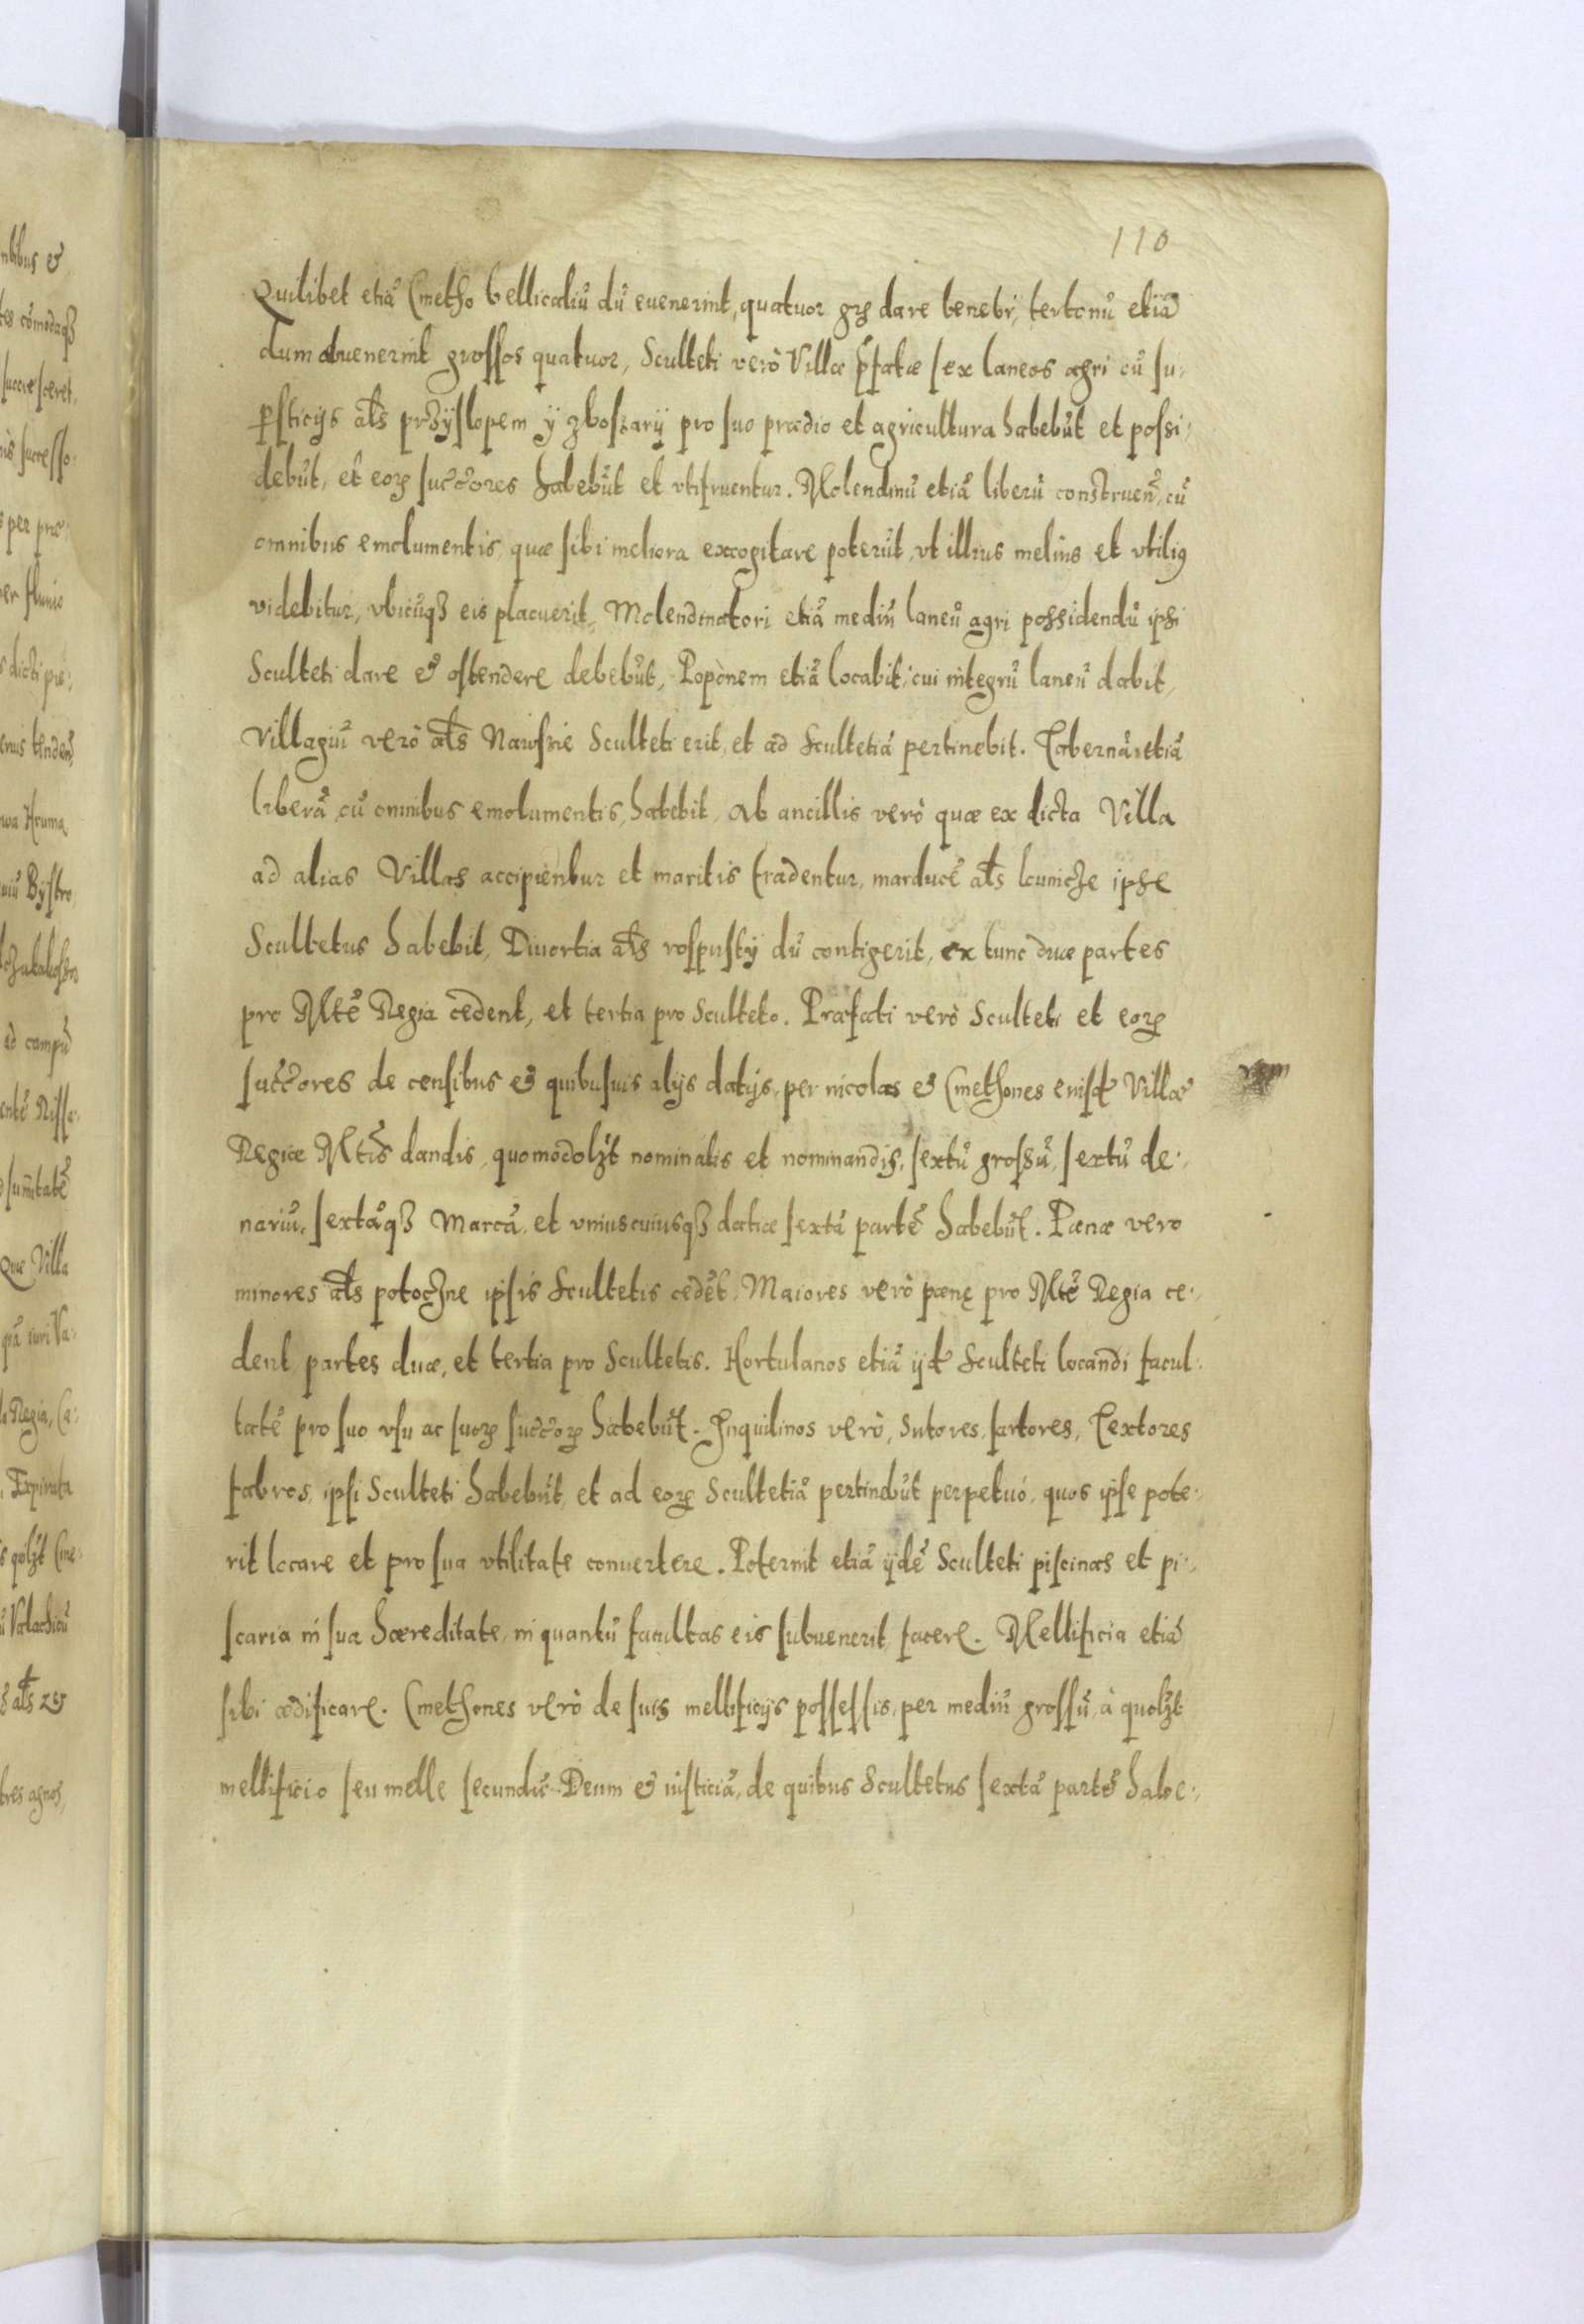 110
Quilibet etiã Cmetho bellicaliũ dũ euenerint, quatuor grs dare tenebr, tertonũ etiã
dum obuenerint grossos quatuor, Sculteti verò Villæ p̃fatæ sex laneos agri cũ su-
ꝑsticijs als przÿslopem ÿ zboszarij pro suo prædio et agricultura habebũt et possi:
debũt, et eoꝝ succ̃ores habebũt et vtifruentur. Molendinũ etiã liberũ construeñ, cũ
omnibus emolumentis, quæ sibi meliora excogitare poterũt, vt illius melius et vtiliꝯ
videbitur, vbicũqꝫ eis placuerit, Molendinatori etiã mediũ laneũ agri possidendũ ipsi
Sculteti dare & ostendere debebũt, Popònem etiã locabit, cui integrũ laneũ dabit,
Villagiũ verò als Nawsie Sculteti erit, et ad Scultetiã pertinebit. Tabernã etiã
liberã cũ omnibus emolumentis, habebit, Ab ancillis verò quæ ex dicta Villa
ad alias Villas accipientur et maritis tradentur, marducẽ als kunicze ipse
Scultetus habebit, Diuortia als rospustÿ dũ contigerit, ex tunc duæ partes
pro Mtẽ Regia cedent, et tertia pro Sculteto. Præfati verò Sculteti et eoꝝ
succ̃ores de censibus & quibusuis alijs datijs, per incolas & Cmethones eiusd Villæ
Regiæ Mtis dandis, quomodolzt nominatis et nominandis, sextũ grossũ, sextũ de:
nariũ, sextãqꝫ Marcã, et vniuscuiusqꝫ datiæ sextã partẽ habebũt. Pœnæ vero
minores als potoczne ipsis Scultetis cedẽt, Maiores verò pœnę pro Mtẽ Regia ce:
dent partes duæ, et tertia pro Scultetis. Hortulanos etiã ijd Sculteti locandi facul:
tatẽ pro suo vsu ac suoꝝ succ̃oꝝ habebũt. Inquilinos verò, sutores, sartores, Textores
fabros, ipsi Sculteti habebũt, et ad eoꝝ Scultetiã pertinebũt perpetuó, quos ipse pote:
rit locare et pro sua vtilitate conuertere. Poterint etiã ijdẽ Sculteti piscinas et pi:
scaria in sua hæreditate, in quantũ facultas eis subuenerit, facere. Mellificia etiã
sibi ædificare. Cmethones verò de suis mellificijs possessis, per mediũ grossũ, à quolzt
mellificio seu melle secundũ Deum & iusticiã, de quibus Scultetus sextã partẽ habe: